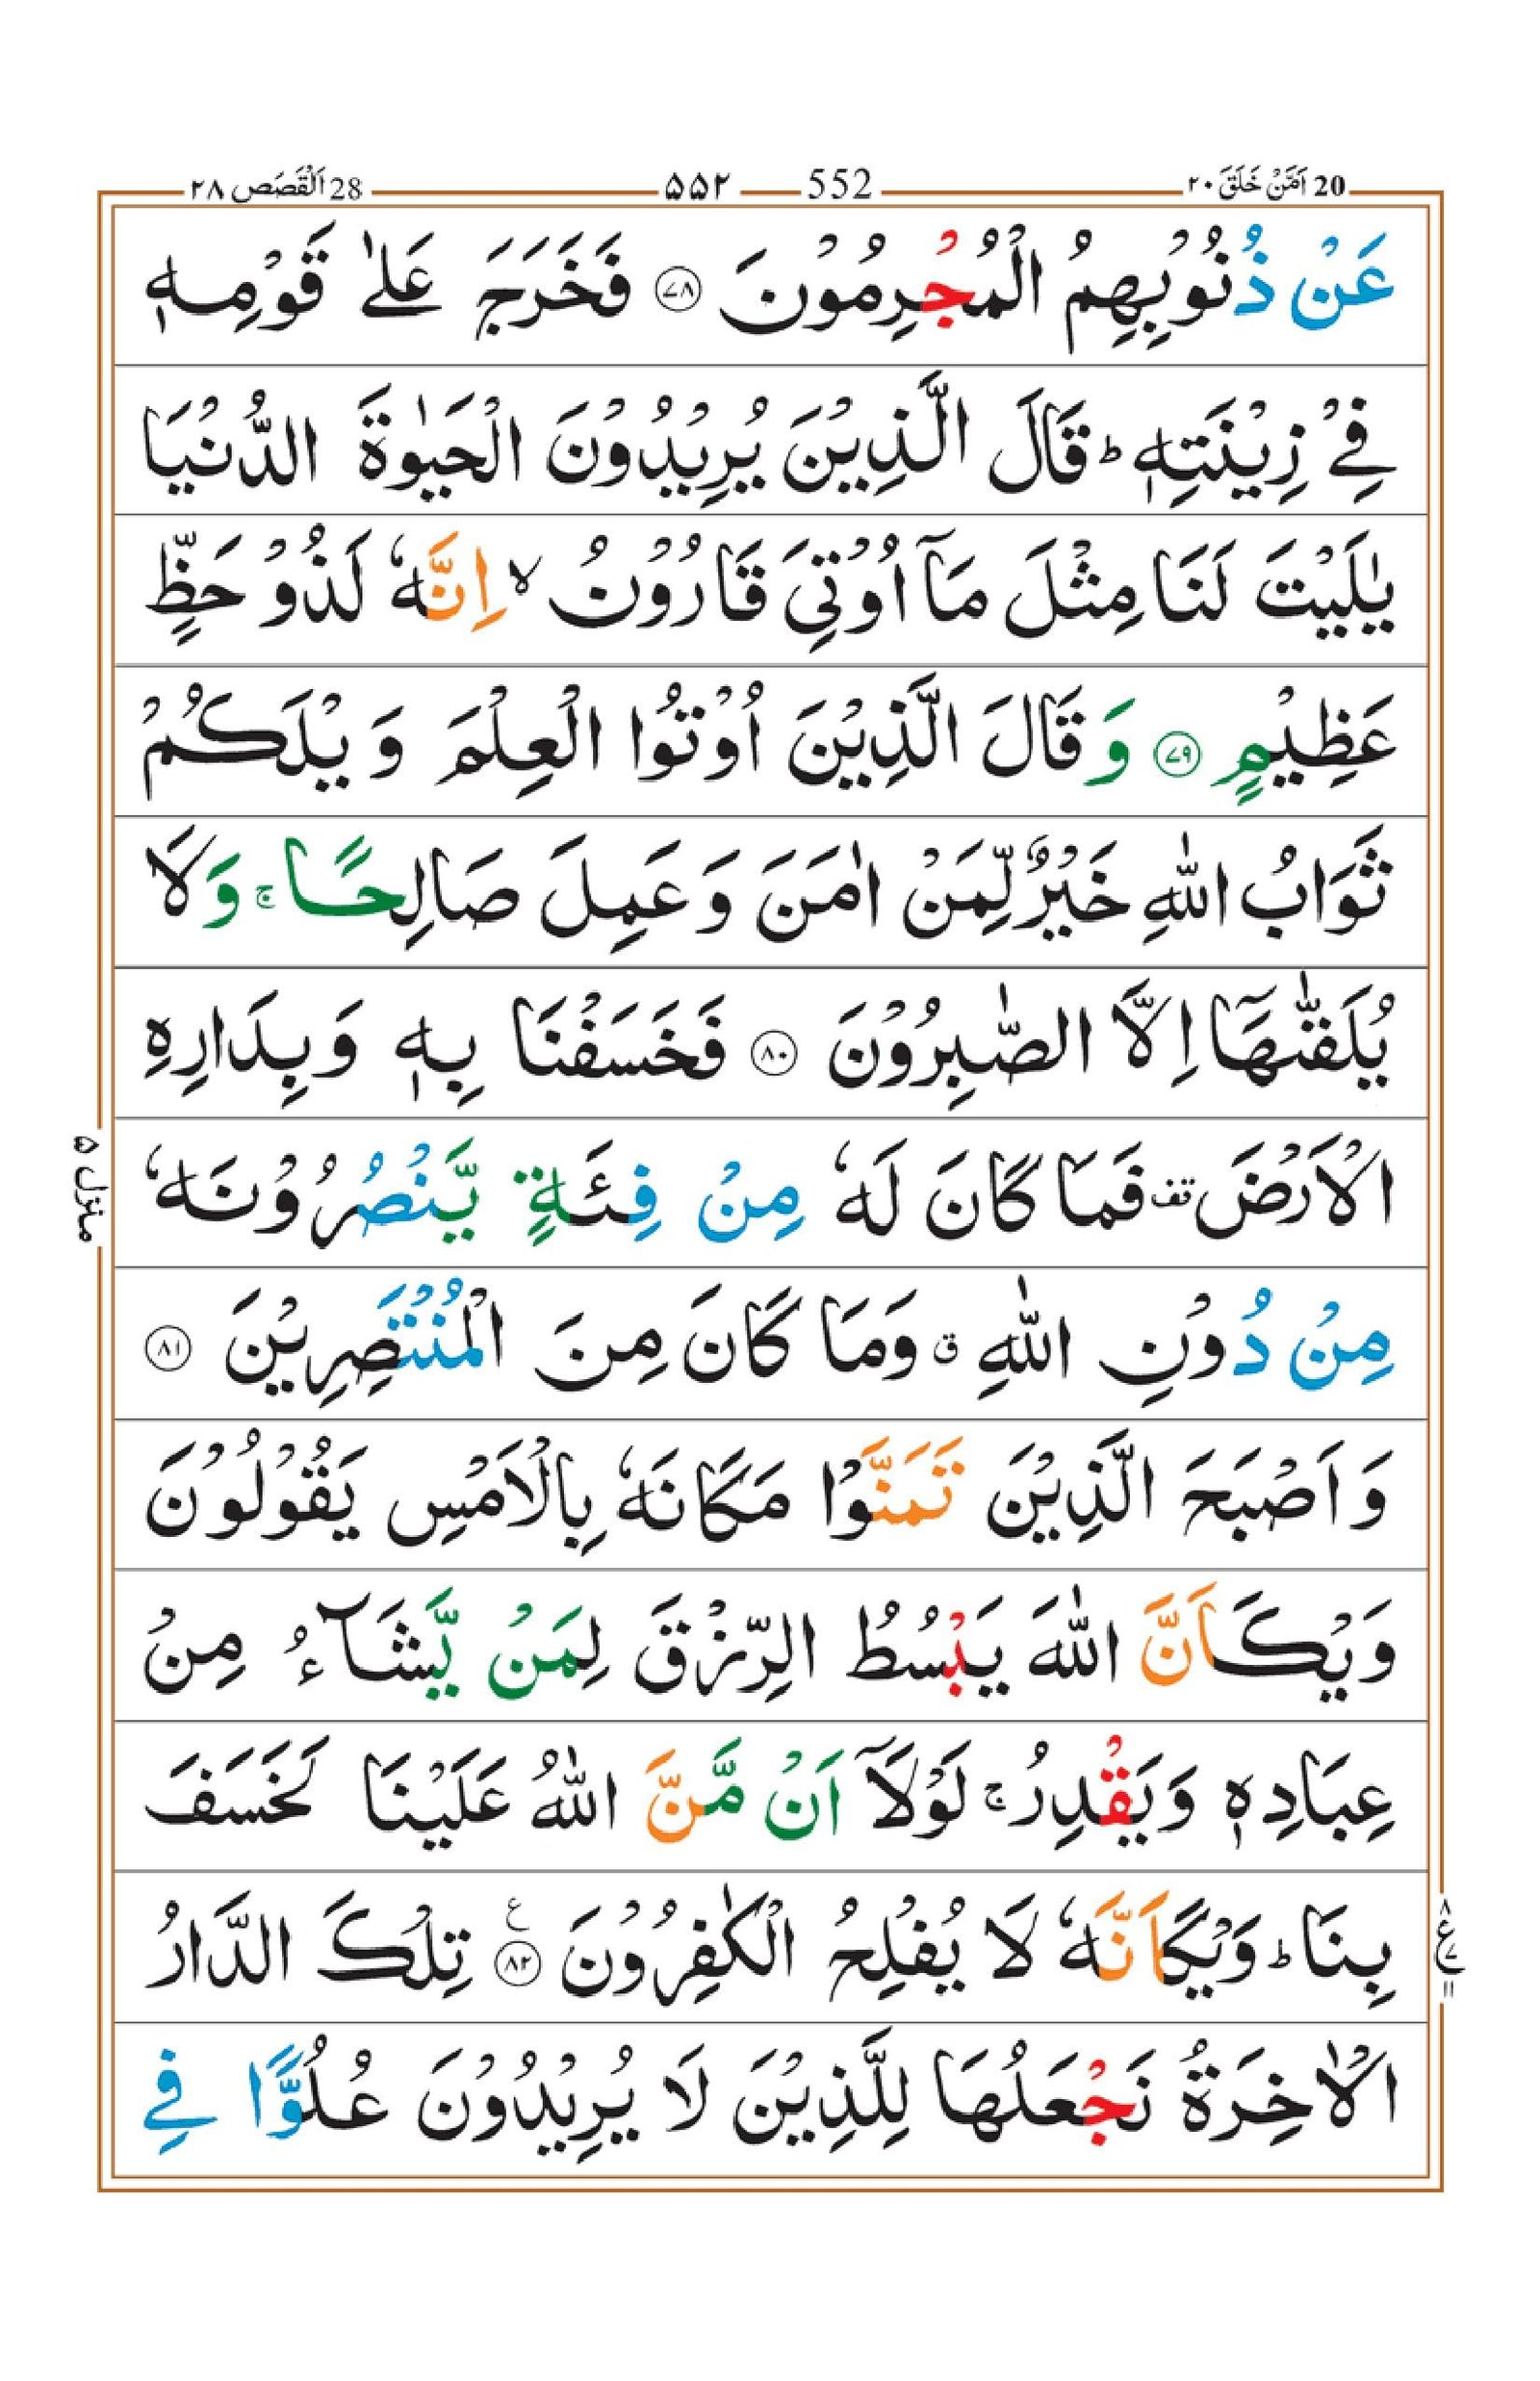 20 اَمَّنْ خَلَقَ ٢٠ 552 ۵۵۲ 28 اَلْقَصَص ٢٨
عَنْ ذُنُوْبِهِمُ الْمُجْرِمُوْنَ ﴿۷۸﴾ فَخَرَجَ عَلٰى قَوْمِهٖ
فِيْ زِيْنَتِهٖ ؕ قَالَ الَّذِيْنَ يُرِيْدُوْنَ الْحَيٰوةَ الدُّنْيَا
يٰلَيْتَ لَنَا مِثْلَ مَاۤ اُوْتِيَ قَارُوْنُ ۙ اِنَّهٗ لَذُوْ حَظٍّ
عَظِيْمٍ ﴿۷۹﴾ وَ قَالَ الَّذِيْنَ اُوْتُوا الْعِلْمَ وَيْلَكُمْ
ثَوَابُ اللّٰهِ خَيْرٌ لِّمَنْ اٰمَنَ وَ عَمِلَ صَالِحًا ۚ وَ لَا
يُلَقّٰىهَاۤ اِلَّا الصّٰبِرُوْنَ ﴿۸۰﴾ فَخَسَفْنَا بِهٖ وَ بِدَارِهِ
الْاَرْضَ ۫ فَمَا كَانَ لَهٗ مِنْ فِئَةٍ يَّنْصُرُوْنَهٗ
مِنْ دُوْنِ اللّٰهِ ۗ وَمَا كَانَ مِنَ الْمُنْتَصِرِيْنَ ﴿۸۱﴾
وَ اَصْبَحَ الَّذِيْنَ تَمَنَّوْا مَكَانَهٗ بِالْاَمْسِ يَقُوْلُوْنَ
وَيْكَاَنَّ اللّٰهَ يَبْسُطُ الرِّزْقَ لِمَنْ يَّشَآءُ مِنْ
عِبَادِهٖ وَيَقْدِرُ ۚ لَوْلَاۤ اَنْ مَّنَّ اللّٰهُ عَلَيْنَا لَخَسَفَ
بِنَا ؕ وَيْكَاَنَّهٗ لَا يُفْلِحُ الْكٰفِرُوْنَ ﴿۸۲﴾ ع تِلْكَ الدَّارُ
الْاٰخِرَةُ نَجْعَلُهَا لِلَّذِيْنَ لَا يُرِيْدُوْنَ عُلُوًّا فِي
منزل ۵
۸ ع ۷ ۱۱